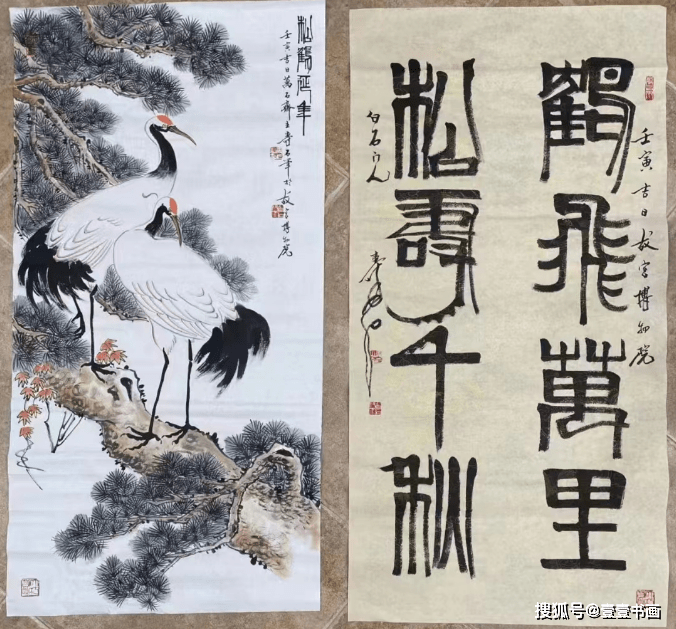 松鹤延年
壬寅吉日万石斋主寿石笔于故宫博物院
鹤飞萬里
壬寅吉日故宫博物院
松寿千秋
白石门人
搜狐号@壹壹书画